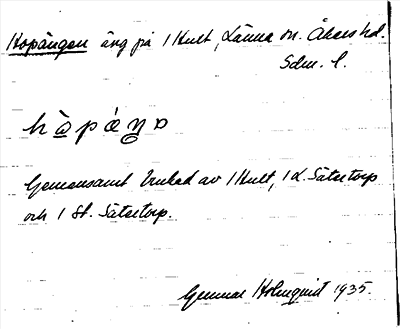 Hopängen äng på 1 Hult, Länna sn. Åkers hd.
Sdm. l.
Gemensamt brukad av 1 Hult, 1 L. Sätertorp
och 1 St. Sätertorp.
Gunnar Holmquist 1935.